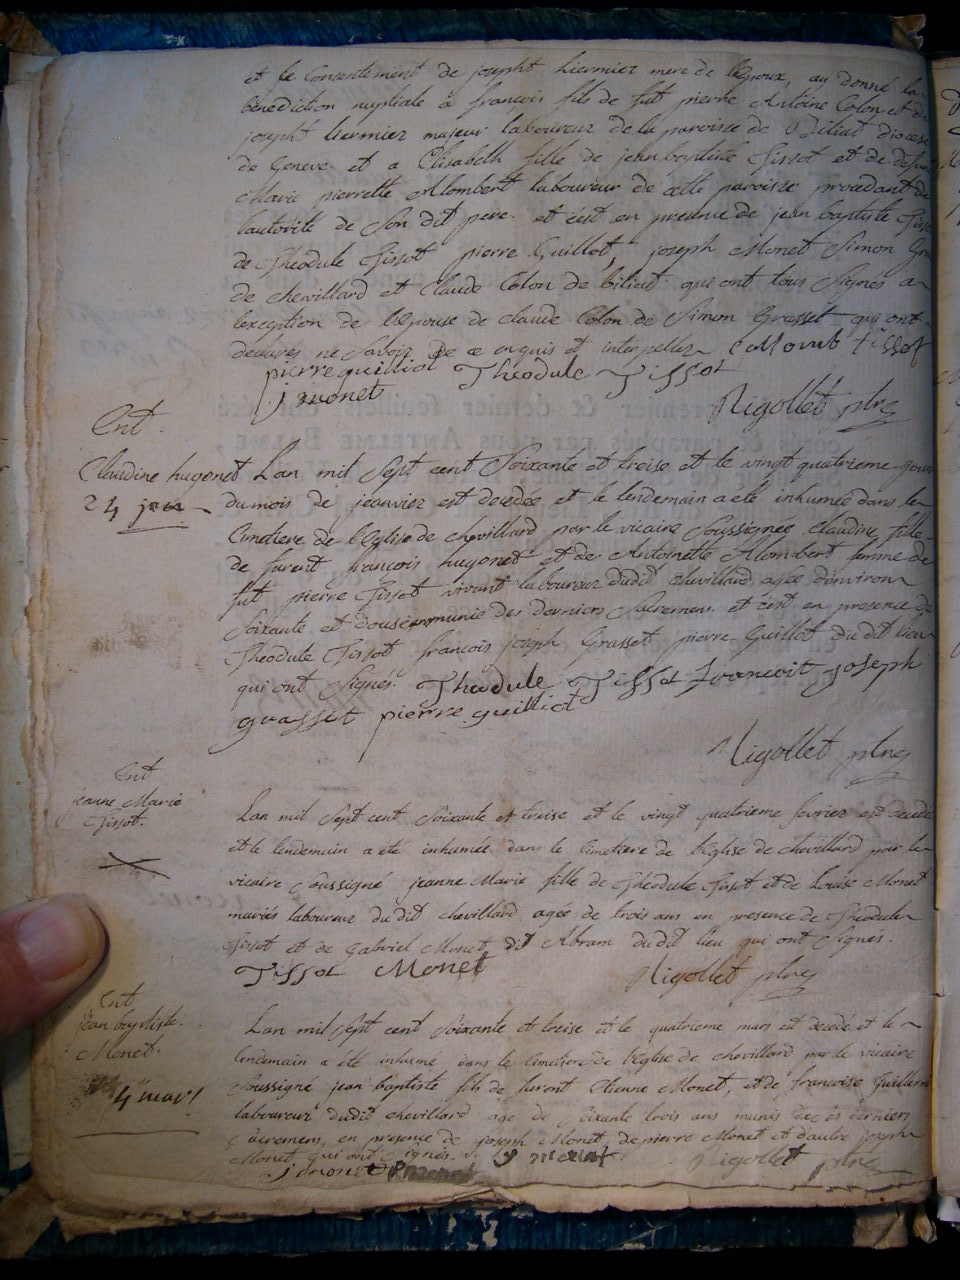 et le Consentement de joseph hiermier mere de lepoux, ay donné la
bénédiction nuptiale à francois fils de fut pierre Antoine Colon et de
joseph hermier majeur laboureur de la paroisse de diocese
de Geneve et a Elisabeth fille de jean baptiste Tissot et de defun
Marie pierrette Alombert laboureur de cette paroisse procedant de
lautorité de son dit pere. et cest en presence de jean baptiste Tisso
de Théodule Tissot pierre Guillot, joseph Monet Simon Gra
de chevillard et Claude Colon de biliat qui ont tous Signés a
lexception de lepouse de claude Colon de Simon Grasset qui ont
declares ne Savoir de ce enquis et interpeller Collomb Tissot
pierre guilliot Théodule Tissot
j monet Rigollet ptre
Ent.
Claudine hugonet
24 janv
Lan mil Sept cent Soixante et treise et le vingt quatrieme jour
du mois de jeanvier est decedée et le lendemain a été inhumée dans le
Cimetiere de l'Eglise de chevillard par le vicaire Soussignée Claudine fille
de furent francois hugonet et de Antoinette Alombert femme de
fut pierre Tissot vivant laboureur dudit chevillard, agée denviron
Soixante et douse munie des derniers Sacremens et cest en presence de
Theodule Tissot francois joseph Grasset pierre Guillot du dit lieu
qui ont Signés. Theodule Tissot francoit joseph
grasset pierre guilliot
Rigollet ptre
Ent
jeanne Marie
Tissot.
Lan mil Sept cent Soixante et treise et le vingt quatrieme fevrier est decedée
et le lendemain a été inhumée dans le Cimetiere de l'Eglise de chevillard par le
vicaire Soussigné jeanne Marie fille de Théodule Tissot et de Louise Monet
mariés laboureur du dit chevillard agée de trois ans en presence de Théodule
Tissot et de Gabriel Monet dit Abram du dit lieu qui ont Signés.
Tissot Monet Rigollet ptre
Ent
jean baptiste.
Monet.
4 mars
Lan mil Sept cent Soixante et treise et le quatrieme mars est decedé et le
lendemain a été inhumé dans le Cimetiere de l'Eglise de chevillard par le vicaire
Soussigné jean baptiste fils de furent Etienne Monet, et de francoise Guillerm
laboureur dudit chevillard age de Soixante trois ans munis de derniers
Sacremens, en presence de joseph Monet de pierre Monet et dautre joseph
Monet qui ont Signés. j monet Rigollet ptre
j monet p monet